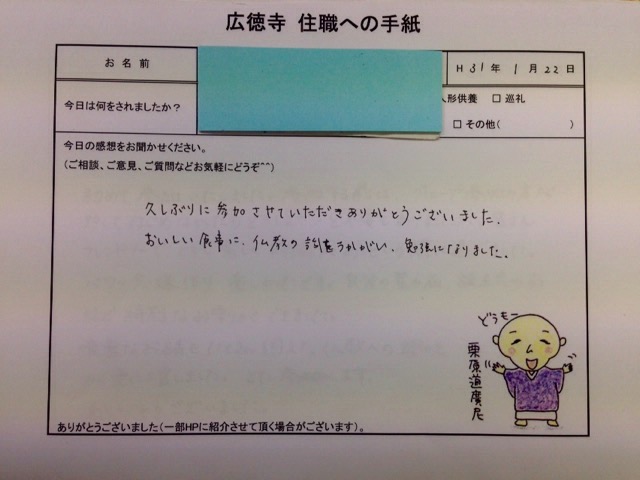 広徳寺 住職への手紙
お名前
H31年1月22日
今日は何をされましたか?
人形供養 □ 巡礼
□ その他( )
今日の感想をお聞かせください。
(ご相談、ご意見、ご質問などお気軽にどうぞ^^)
久しぶりに参加させていただきありがとうございました。
おいしい食事に、仏教の話をうかがい、勉強になりました。
どうもー
栗原道廣尼
ありがとうございました(一部HPに紹介させて頂く場合がございます)。